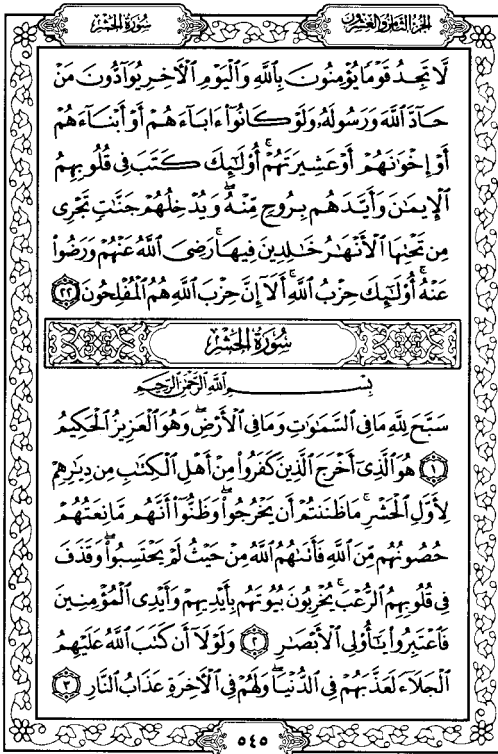 سُورَةُ الحَشْرِ
الجزء الثامن والعشرون
لَّا تَجِدُ قَوْمًا يُؤْمِنُونَ بِٱللَّهِ وَٱلْيَوْمِ ٱلْأَخِرِ يُوَآدُّونَ مَنْ
حَآدَّ ٱللَّهَ وَرَسُولَهُۥ وَلَوْ كَانُوٓا۟ ءَابَآءَهُمْ أَوْ أَبْنَآءَهُمْ
أَوْ إِخْوَٰنَهُمْ أَوْ عَشِيرَتَهُمْ ۚ أُو۟لَٰٓئِكَ كَتَبَ فِى قُلُوبِهِمُ
ٱلْإِيمَٰنَ وَأَيَّدَهُم بِرُوحٍ مِّنْهُ ۖ وَيُدْخِلُهُمْ جَنَّٰتٍ تَجْرِى
مِن تَحْتِهَا ٱلْأَنْهَٰرُ خَٰلِدِينَ فِيهَا ۚ رَضِىَ ٱللَّهُ عَنْهُمْ وَرَضُوا۟
عَنْهُ ۚ أُو۟لَٰٓئِكَ حِزْبُ ٱللَّهِ ۚ أَلَآ إِنَّ حِزْبَ ٱللَّهِ هُمُ ٱلْمُفْلِحُونَ ٢٢
سُورَةُ الحَشْرِ
بِسْمِ ٱللَّهِ ٱلرَّحْمَٰنِ ٱلرَّحِيمِ
سَبَّحَ لِلَّهِ مَا فِى ٱلسَّمَٰوَٰتِ وَمَا فِى ٱلْأَرْضِ ۖ وَهُوَ ٱلْعَزِيزُ ٱلْحَكِيمُ
١ هُوَ ٱلَّذِىٓ أَخْرَجَ ٱلَّذِينَ كَفَرُوا۟ مِنْ أَهْلِ ٱلْكِتَٰبِ مِن دِيَٰرِهِمْ
لِأَوَّلِ ٱلْحَشْرِ ۚ مَا ظَنَنتُمْ أَن يَخْرُجُوا۟ ۖ وَظَنُّوٓا۟ أَنَّهُم مَّانِعَتُهُمْ
حُصُونُهُم مِّنَ ٱللَّهِ فَأَتَىٰهُمُ ٱللَّهُ مِنْ حَيْثُ لَمْ يَحْتَسِبُوا۟ ۖ وَقَذَفَ
فِى قُلُوبِهِمُ ٱلرُّعْبَ ۚ يُخْرِبُونَ بُيُوتَهُم بِأَيْدِيهِمْ وَأَيْدِى ٱلْمُؤْمِنِينَ
فَٱعْتَبِرُوا۟ يَٰٓأُو۟لِى ٱلْأَبْصَٰرِ ٢ وَلَوْلَآ أَن كَتَبَ ٱللَّهُ عَلَيْهِمُ
ٱلْجَلَآءَ لَعَذَّبَهُمْ فِى ٱلدُّنْيَا ۖ وَلَهُمْ فِى ٱلْأَخِرَةِ عَذَابُ ٱلنَّارِ ٣
٥٤٥